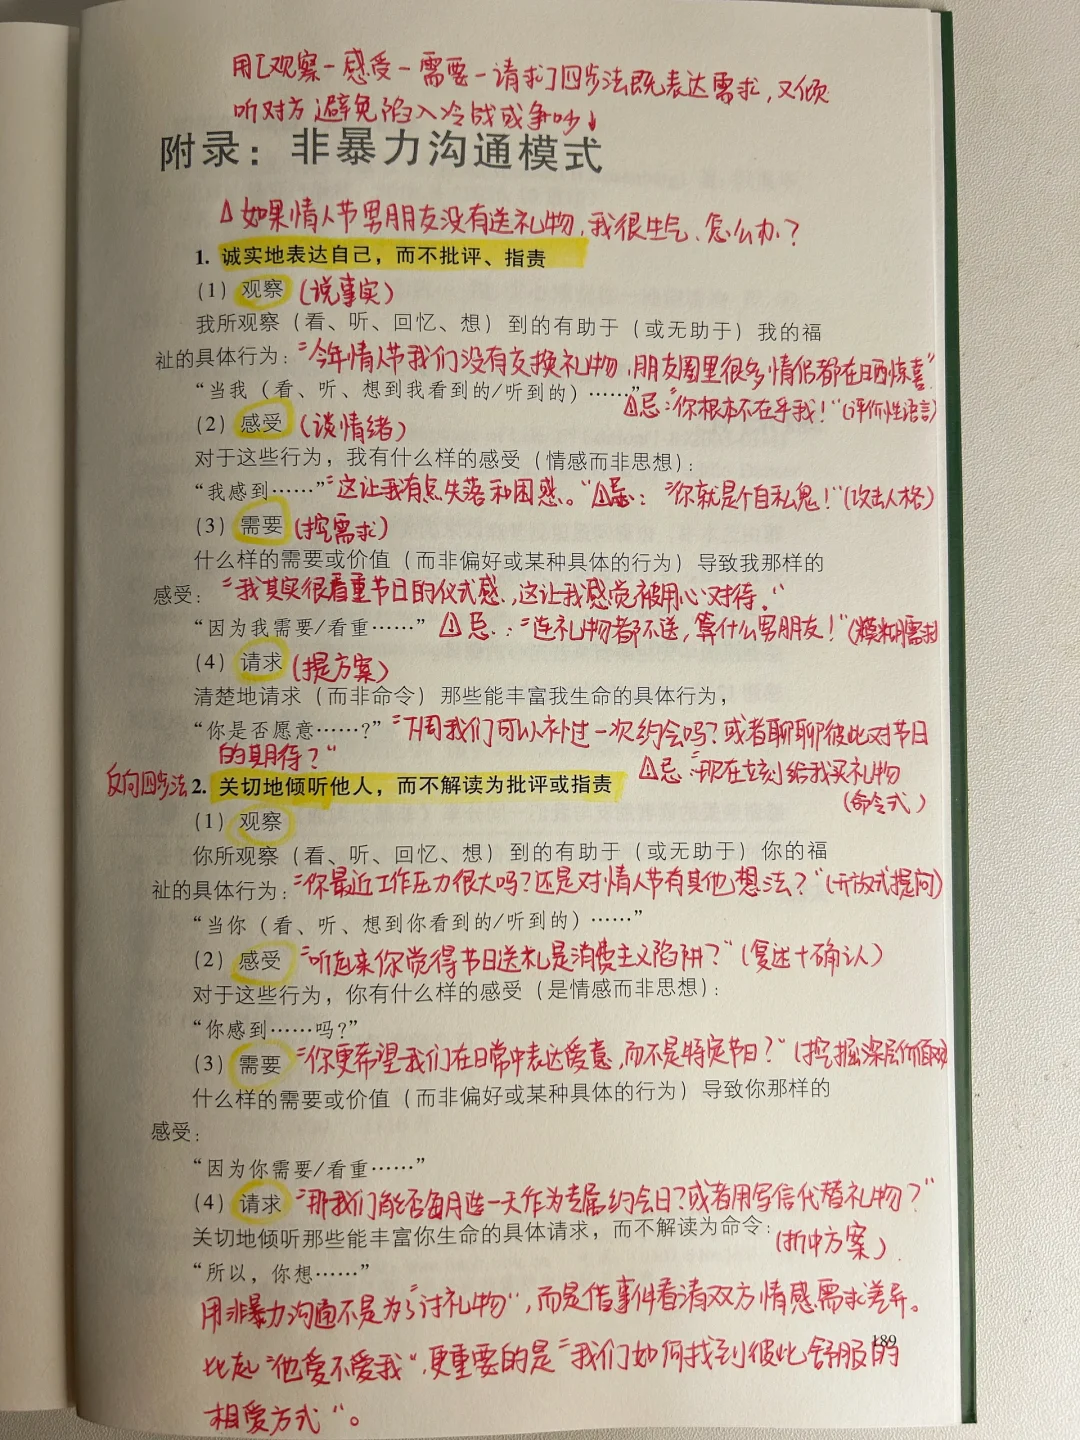 用[观察-感受-需要-请求]四步法既表达需求,又倾
听对方避免陷入冷战或争吵↓
附录：非暴力沟通模式
△如果情人节男朋友没有送礼物,我很生气、怎么办?
1. 诚实地表达自己，而不批评、指责
（1）观察 (说事实)
我所观察（看、听、回忆、想）到的有助于（或无助于）我的福
祉的具体行为："今年情人节我们没有交换礼物,朋友圈里很多情侣都在晒惊喜"
“当我（看、听、想到我看到的/听到的）……”
⚠忌:"你根本不在乎我!"(评价性语言)
（2）感受 (谈情绪)
对于这些行为，我有什么样的感受（情感而非思想）：
“我感到……”"这让我有点失落和困惑。"⚠忌:"你就是个自私鬼!"(攻击人格)
（3）需要 (挖需求)
什么样的需要或价值（而非偏好或某种具体的行为）导致我那样的
感受："我其实很看重节日的仪式感,这让我感觉被用心对待."
“因为我需要/看重……” ⚠忌:"连礼物都不送,算什么男朋友!"(模糊需求)
（4）请求 (提方案)
清楚地请求（而非命令）那些能丰富我生命的具体行为，
“你是否愿意……?”"下周我们可以补过一次约会吗?或者聊聊彼此对节日
的期待?"
⚠忌:"现在立刻给我买礼物
(命令式)
反向四步法 2. 关切地倾听他人，而不解读为批评或指责
（1）观察
你所观察（看、听、回忆、想）到的有助于（或无助于）你的福
祉的具体行为："你最近工作压力很大吗?还是对情人节有其他想法?"(开放式提问)
“当你（看、听、想到你看到的/听到的）……”
（2）感受 "听起来你觉得节日送礼是消费主义陷阱?"(复述+确认)
对于这些行为，你有什么样的感受（是情感而非思想）：
“你感到……吗?”
（3）需要 "你更希望我们在日常中表达爱意,而不是特定节日?"(挖掘深层价值观)
什么样的需要或价值（而非偏好或某种具体的行为）导致你那样的
感受：
“因为你需要/看重……”
（4）请求 "那我们能否每月选一天作为专属约会日?或者用写信代替礼物?"
关切地倾听那些能丰富你生命的具体请求，而不解读为命令：
(折中方案).
“所以，你想……”
用非暴力沟通不是为了"讨礼物",而是借事件看清双方情感需求差异。
189
比起"他爱不爱我",更重要的是"我们如何找到彼此舒服的
相爱方式"。